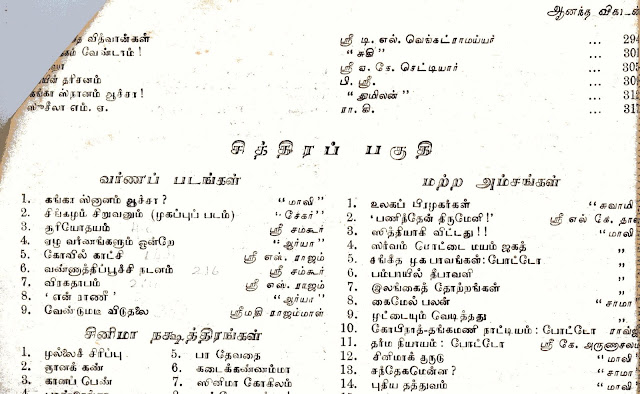 ஆனந்த விகடன்
வித்வான்கள் ஸ்ரீ டி. எல். வெங்கட்ராமய்யர் ... 294
வேண்டாம்! "சுகி" ...
ஸ்ரீ ஏ. கே. செட்டியார் ... 305
தரிசனம் பி. ஸ்ரீ. ...
கங்கா ஸ்நானம் ஆச்சா! "துமிலன்" ...
சுசீலா எம். ஏ. ரா. கி. ... 317
சித்திரப் பகுதி
வர்ணப் படங்கள்
1. கங்கா ஸ்னானம் ஆச்சா? "மாலி"
2. சிங்கமும் சிறுவனும் (முகப்புப் படம்) "சேகர்"
3. சூரியோதயம் ஸ்ரீ சம்கூர்
4. ஏழு வர்ணங்களும் ஒன்றே "ஆர்யா"
5. கோவில் காட்சி ஸ்ரீ எஸ். ராஜம்
6. வண்ணாத்திப்பூச்சி நடனம் 216 ஸ்ரீ சம்கூர்
7. விரகதாபம் ஸ்ரீ எஸ். ராஜம்
8. 'என் ராணீ' "ஆர்யா"
9. வேண்டுமடி விடுதலை ஸ்ரீமதி ராஜம்மாள்
சினிமா நக்ஷத்திரங்கள்
1. முல்லைச் சிரிப்பு 5. பர தேவதை
2. ஞானக் கண் 6. கடைக்கண்ணம்மா
3. கானப் பெண் 7. ஸினிமா கோகிலம்
மற்ற அம்சங்கள்
1. உலகப் பிரமுகர்கள் "சுவாமி
2. 'பணிந்தேன் திருமேனி!' ஸ்ரீ எல் கே.
3. ஸித்தியாகி விட்டது!! "மாலி
4. ஸர்வம் மொட்டை மயம் ஜகத் "
5. சங்கீத முக பாவங்கள்: போட்டோ "
6. பம்பாயில் தீபாவளி "
7. இலங்கைத் தோற்றங்கள் "
8. கைமேல் பலன் "சாமா
9. மூட்டையும் வெடித்தது "
10. கோபிநாத்-தங்கமணி நாட்டியம்: போட்டோ
11. தர்ம நியாயம்: போட்டோ ஸ்ரீ கே. அருணாசலம்
12. சினிமாக் குருடு "மாலி
13. சந்தேகமென்ன? "சாமா
14. புதிய தத்துவம் "மாலி